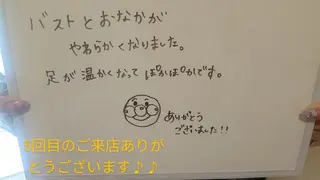 バストとおなかが
やわらかくなりました。
足が温かくなって ぽかぽかです。
ありがとう
ございました!!
5回目のご来店ありが
とうございます♪♪